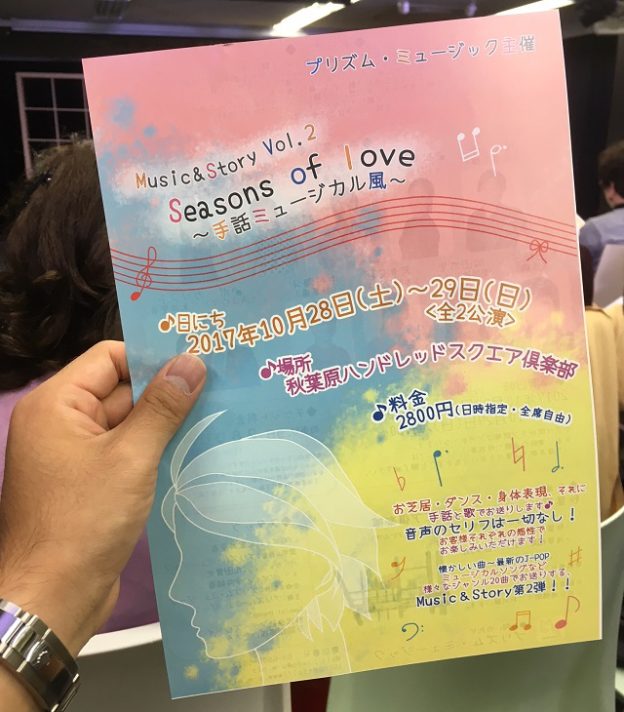 プリズム・ミュージック主催
Music&Story Vol.2
Seasons of love
～手話ミュージカル風～
♪日にち
2017年10月28日(土)～29日(日)
<全2公演>
♪場所
秋葉原ハンドレッドスクエア倶楽部
♪料金
2800円(日時指定・全席自由)
お芝居・ダンス・身体表現、それに
手話と歌でお送りします♪
音声のセリフは一切なし！
お客様それぞれの感性で
お楽しみいただけます！
懐かしい曲～最新のJ-POP
ミュージカルソングなど
様々なジャンル20曲でお送りする、
Music&Story第2弾！！